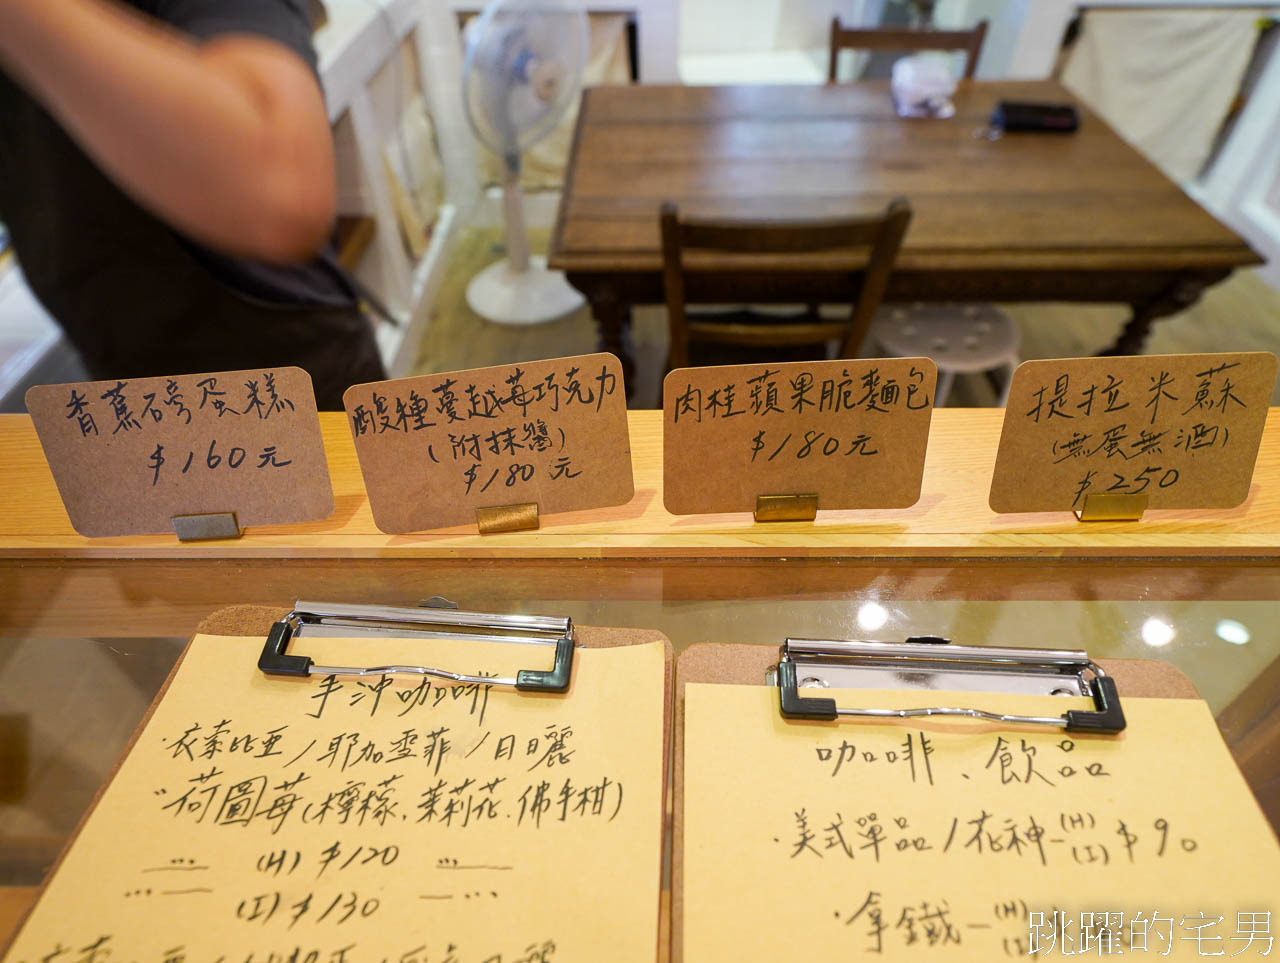 香蕉磅蛋糕
$160元
酸種蔓越莓巧克力
(附抹醬)
$180元
肉桂蘋果脆麵包
$180元
提拉米蘇
(無蛋無酒)
$250
手沖咖啡
·衣索比亞/耶加雪菲/日曬
"荷圖莓(檸檬.茉莉花.佛手柑)
(H) $120
(I) $130
咖啡、飲品
·美式單品/花神-(H)(I) $90
·拿鐵-(H)
跳躍的宅男